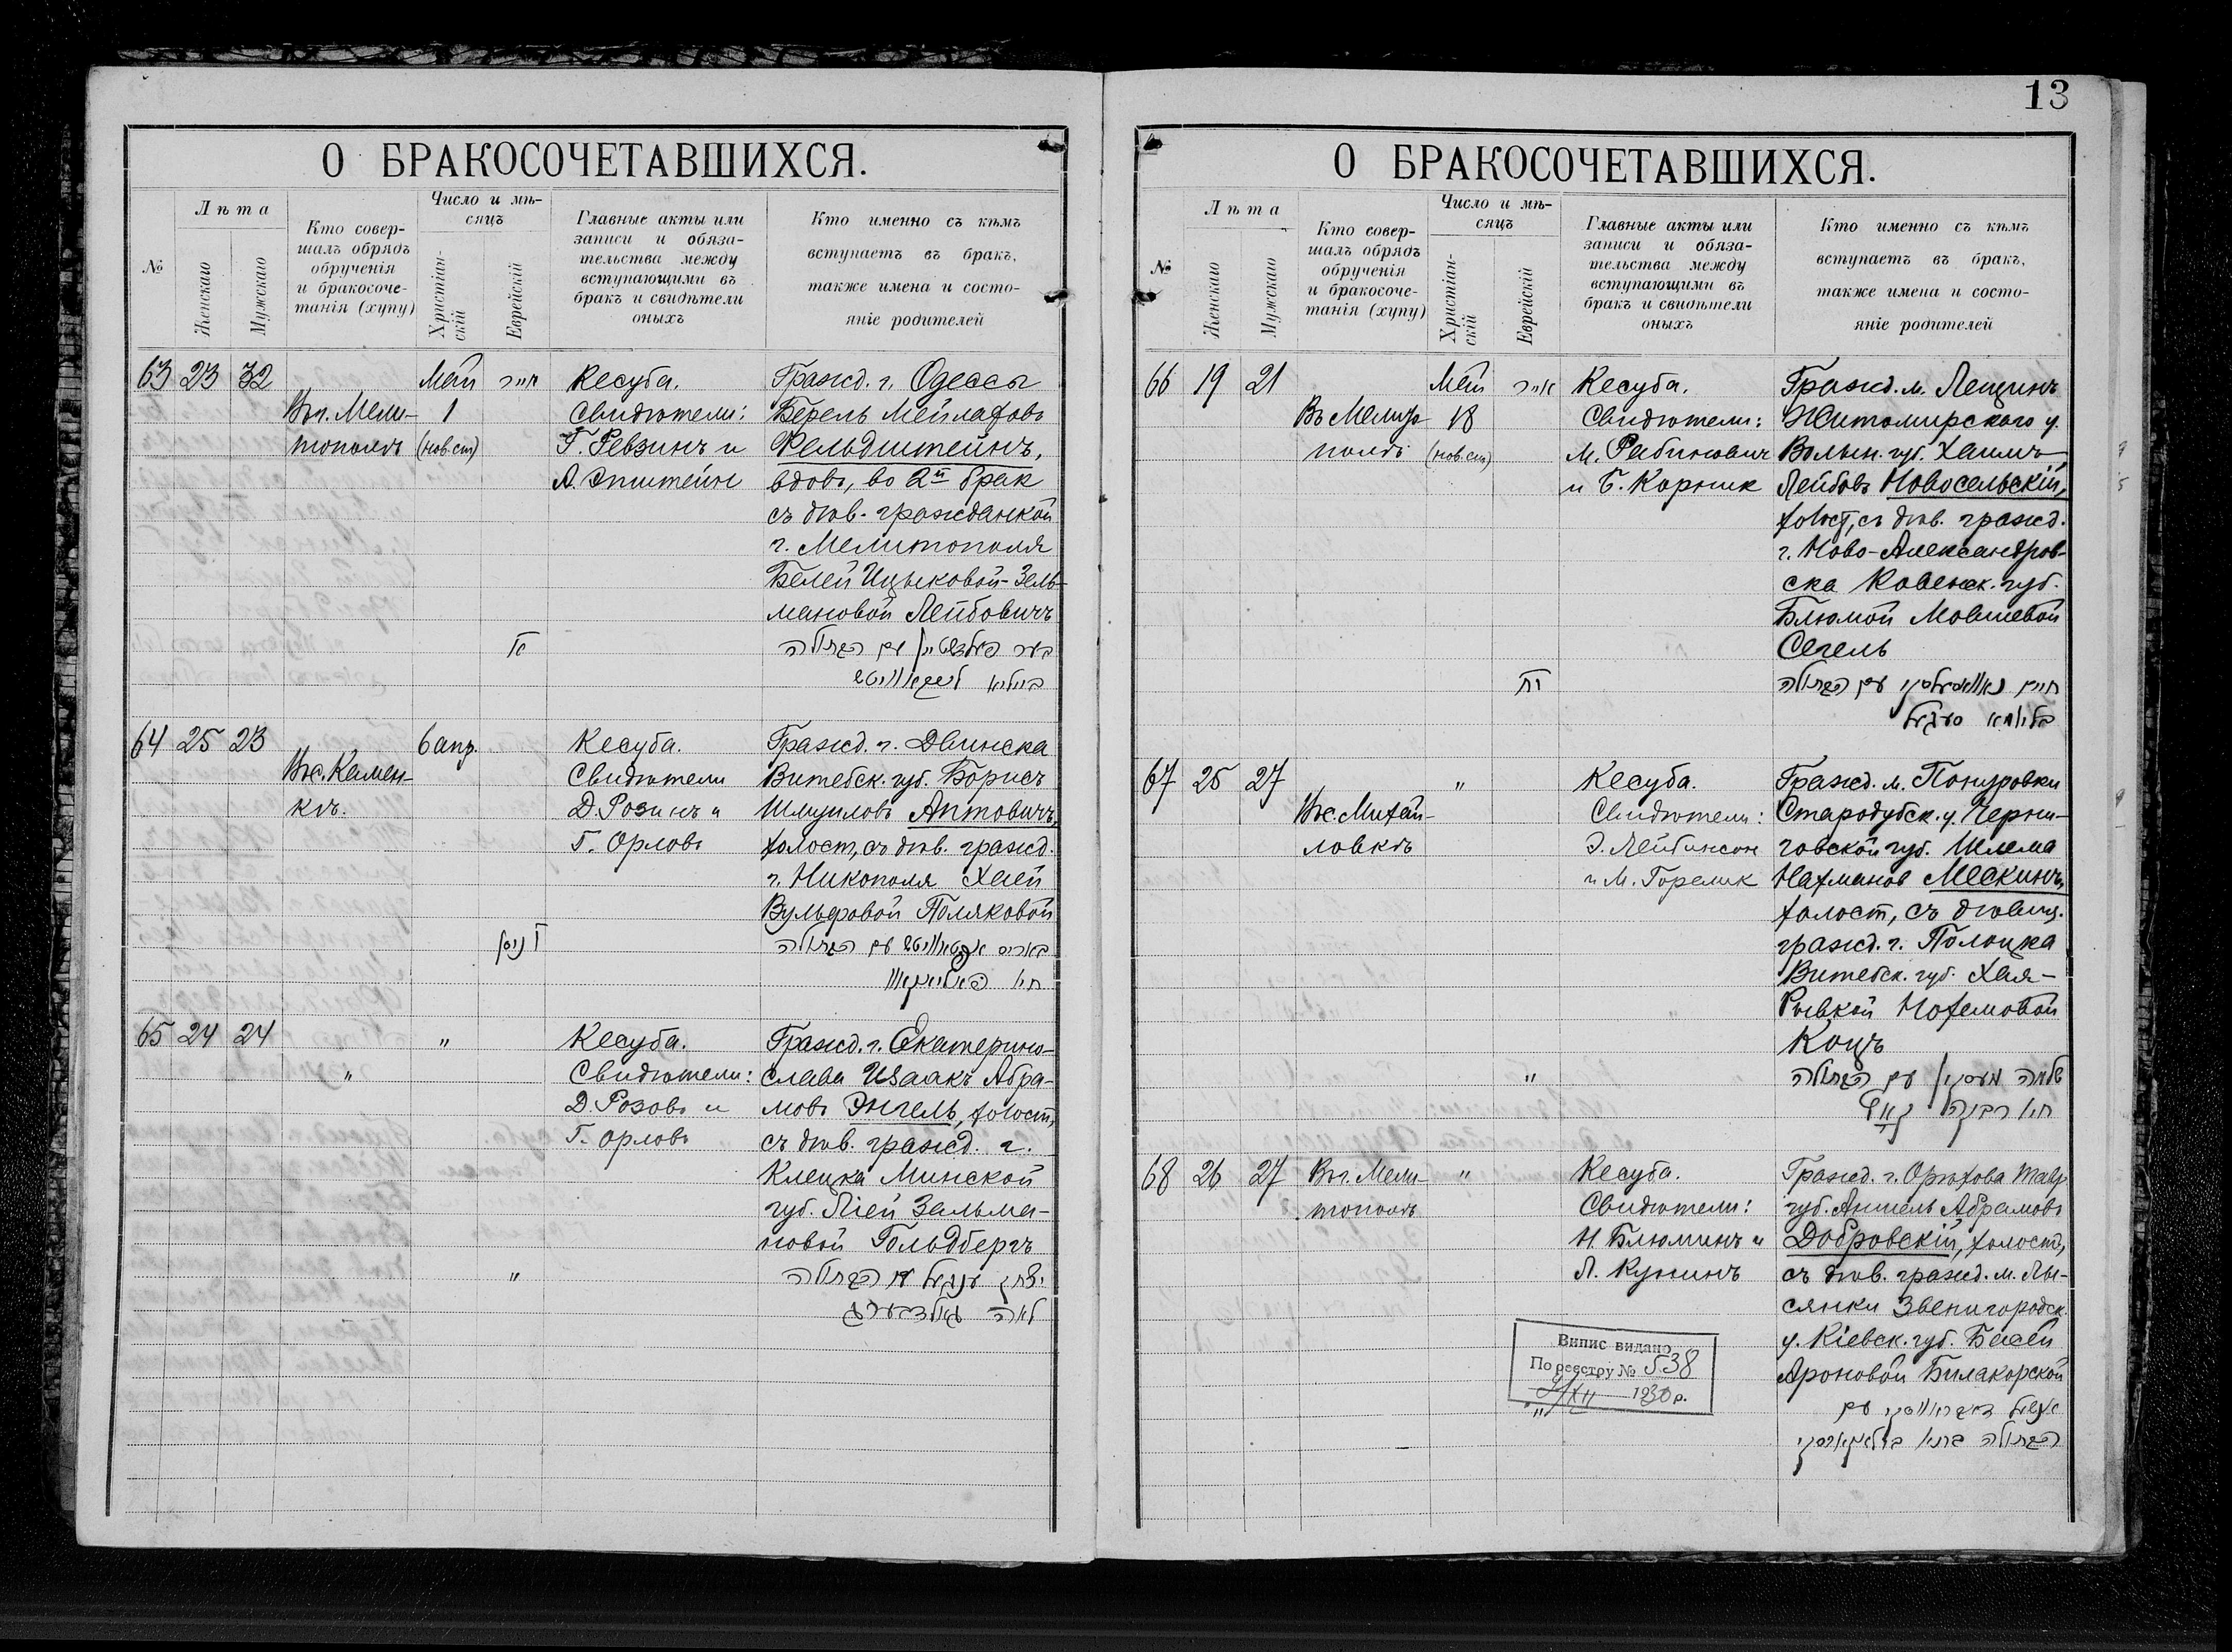 О БРАКОСОЧЕТАВШИХСЯ.
№
Лѣта
Женскаго
Мужскаго
Кто совер-
шалъ обрядъ
обрученія
и бракосоче-
танія (хупу)
Число и мѣ-
сяцъ
Христіан-
скій
Еврейскій
Главные акты или
записи и обяза-
тельства между
вступающими въ
бракъ и свидѣтели
оныхъ
Кто именно съ кѣмъ
вступаетъ въ бракъ,
также имена и состо-
яніе родителей
63 23 32
Въ г. Мели-
тополѣ
Май
1
(нов. ст)
אייר
Кесуба.
Свидѣтели:
Г. Ревзинъ и
А. Эпштейн
Гражд. г. Одессы
Берель Мейлаховъ
Фельдштейнъ,
вдовъ, во 2й брак
съ дѣв. гражданкой
г. Мелитополя
Бейлей Ицыковой-Зель-
мановой Лейбовичъ
בער פעלדשטיין עם הבתולה
ביילא לייבאוויטש
64 25 23
Въ с. Камен-
кѣ.
6 апр.
ניסן
Кесуба.
Свидѣтели
Д. Розинъ и
Г. Орловъ
Гражд. г. Двинска
Витебск. губ. Борисъ
Шмуиловъ Аптовичъ,
холост, съ дѣв. гражд.
г. Никополя Хаей
Вульфовой Поляковой
65 24 24
"
"
"
Кесуба.
Свидѣтели:
Д. Розовъ и
Г. Орловъ
Гражд. г. Екатерино-
слава Исаакъ Абра-
мовъ Энгель, холост,
съ дѣв. гражд. г.
Клецка Минской
губ. Ліей Зельма-
новой Гольдбергъ
יצחק ענגעל עם הבתולה
לאה גאלדבערג
13
О БРАКОСОЧЕТАВШИХСЯ.
№
Лѣта
Женскаго
Мужскаго
Кто совер-
шалъ обрядъ
обрученія
и бракосоче-
танія (хупу)
Число и мѣ-
сяцъ
Христіан-
скій
Еврейскій
Главные акты или
записи и обяза-
тельства между
вступающими въ
бракъ и свидѣтели
оныхъ
Кто именно съ кѣмъ
вступаетъ въ бракъ,
также имена и состо-
яніе родителей
66 19 21
Въ Мелито
полѣ
Май
18
(нов. ст)
אייר
Кесуба.
Свидѣтели:
М. Рабинович
и Б. Корник
Гражд. м. Лещинъ
Житомирского у.
Волын. губ. Хаимъ
Лейбовъ Новосельскій,
холост, съ дѣв. гражд.
г. Ново-Александров-
ска Ковенск. губ.
Блюмой Мовшевой
Сегель
חיים נאוואסעלסקי עם הבתולה
בלומא סעגעל
67 25 27
Въ с. Михай-
ловкѣ
"
"
Кесуба.
Свидѣтели:
Э. Лейбинсон
и М. Горелик
Гражд. м. Понуровки
Стародубск. у. Черни-
говской губ. Шлема
Нахманов Мескинъ,
холост, съ дѣвиц.
гражд. г. Полоцка
Витебск. губ. Хая-
Рывкой Нохемовой
Коцъ
שלמה מעסקין עם הבתולה
חיא רבקה קאץ
68 26 27
Въ г. Мели-
тополѣ
"
"
Кесуба.
Свидѣтели:
И. Блюминъ и
Л. Кунинъ
Гражд. г. Орѣхова Тавр.
губ. Аншель Абрамовъ
Добровскій, холост,
съ дѣв. гражд. м. Лы-
сянки Звенигородск.
у. Кіевск. губ. Басей
Ароновой Билакорской
Випис видано
По реєстру № 538
1930 р.